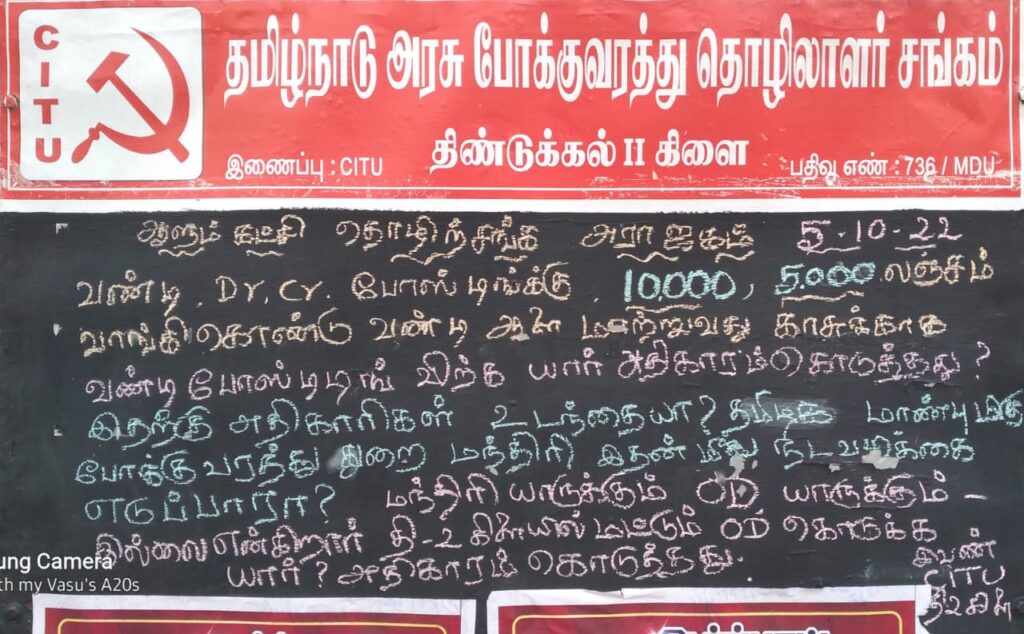 CITU
தமிழ்நாடு அரசு போக்குவரத்து தொழிலாளர் சங்கம்
திண்டுக்கல் II கிளை
இணைப்பு : CITU
பதிவு எண் : 736 / MDU
ஆளும் கட்சி தொழிற்சங்க அராஜகம் 5-10-22
வண்டி, Dr, Cr. போஸ்டிங்க்கு, 10,000, 5,000 லஞ்சம்
வாங்கிகொண்டு வண்டி ஆள் மாற்றுவது காசுக்காக
வண்டி போஸ்டிடிங் விற்க யார் அதிகாரம்கொடுத்தது?
இதற்கு அதிகாரிகள் உடந்தையா? தமிழக மாண்புமிகு
போக்குவரத்து துறை மந்திரி இதன் மீது நடவடிக்கை
எடுப்பாரா? மந்திரி யாருக்கும் OD யாருக்கும் -
இல்லை என்கிறார் தி-2 கிளையில் மட்டும் OD கொடுக்க
யார்? அதிகாரம் கொடுத்தது.
இவண்
CITU
தி2கிளை
ung Camera
ith my Vasu's A20s